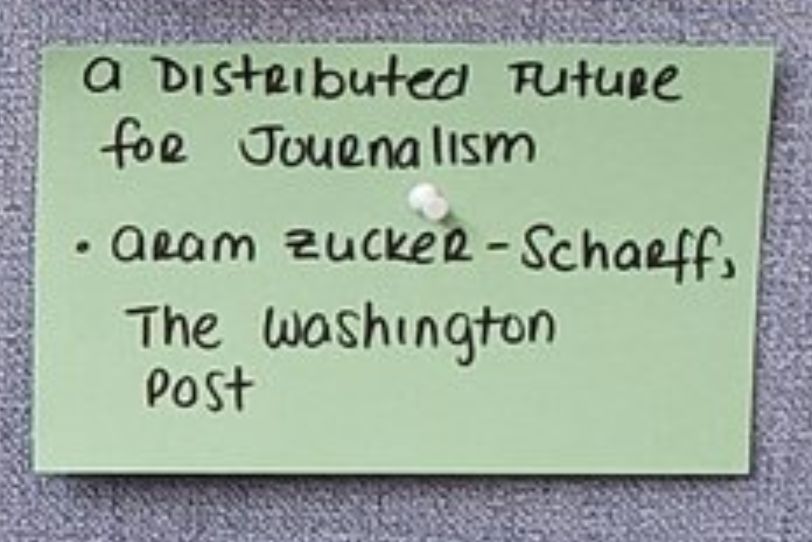 a Distributed Future
for Journalism
• aram zucker-Scharff,
The Washington
Post